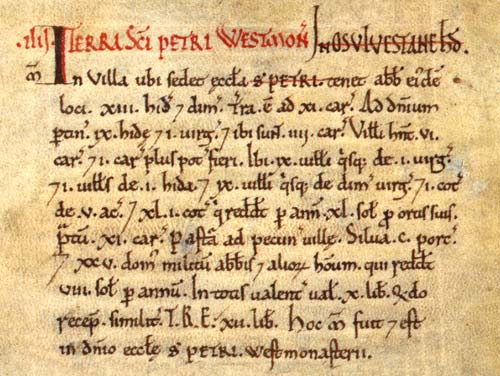 .iiii. TERRA SCI PETRI WESTMON. IN OSVLVESTANE HD.
M In villa ubi sedet æccła S PETRI. tenet abb eiđe
loci. XIII. hid 7 dim. Tra. ē ad XI. car. Ad dnium
ptin. IX. hidæ 7 I. virg. 7 ibi sunt. IIII. car. Villi hnt. VI.
car. 7 I. car plus pot fieri. Ibi. IX. villi qsq; de. I. virg.
7 I. vills de. I. hida. 7 IX. villi qsq; de dim virg. 7 I. cot
de. V. ac. 7 XL. I. cot q redđt p ann. XL. sol p ortis suis.
Ptu. XI. car. Pasta ad pecun villæ. Silua. C. porc.
7 XXV. dom militu abbis 7 alioz houm. qui redđt
VIII. sol p annu. In totis valent val. X. lib. Qdo
recep. similit. T. R. E. XII. lib. Hoc m fuit 7 est
in dnio æccłæ S PETRI. Westmonasterii.